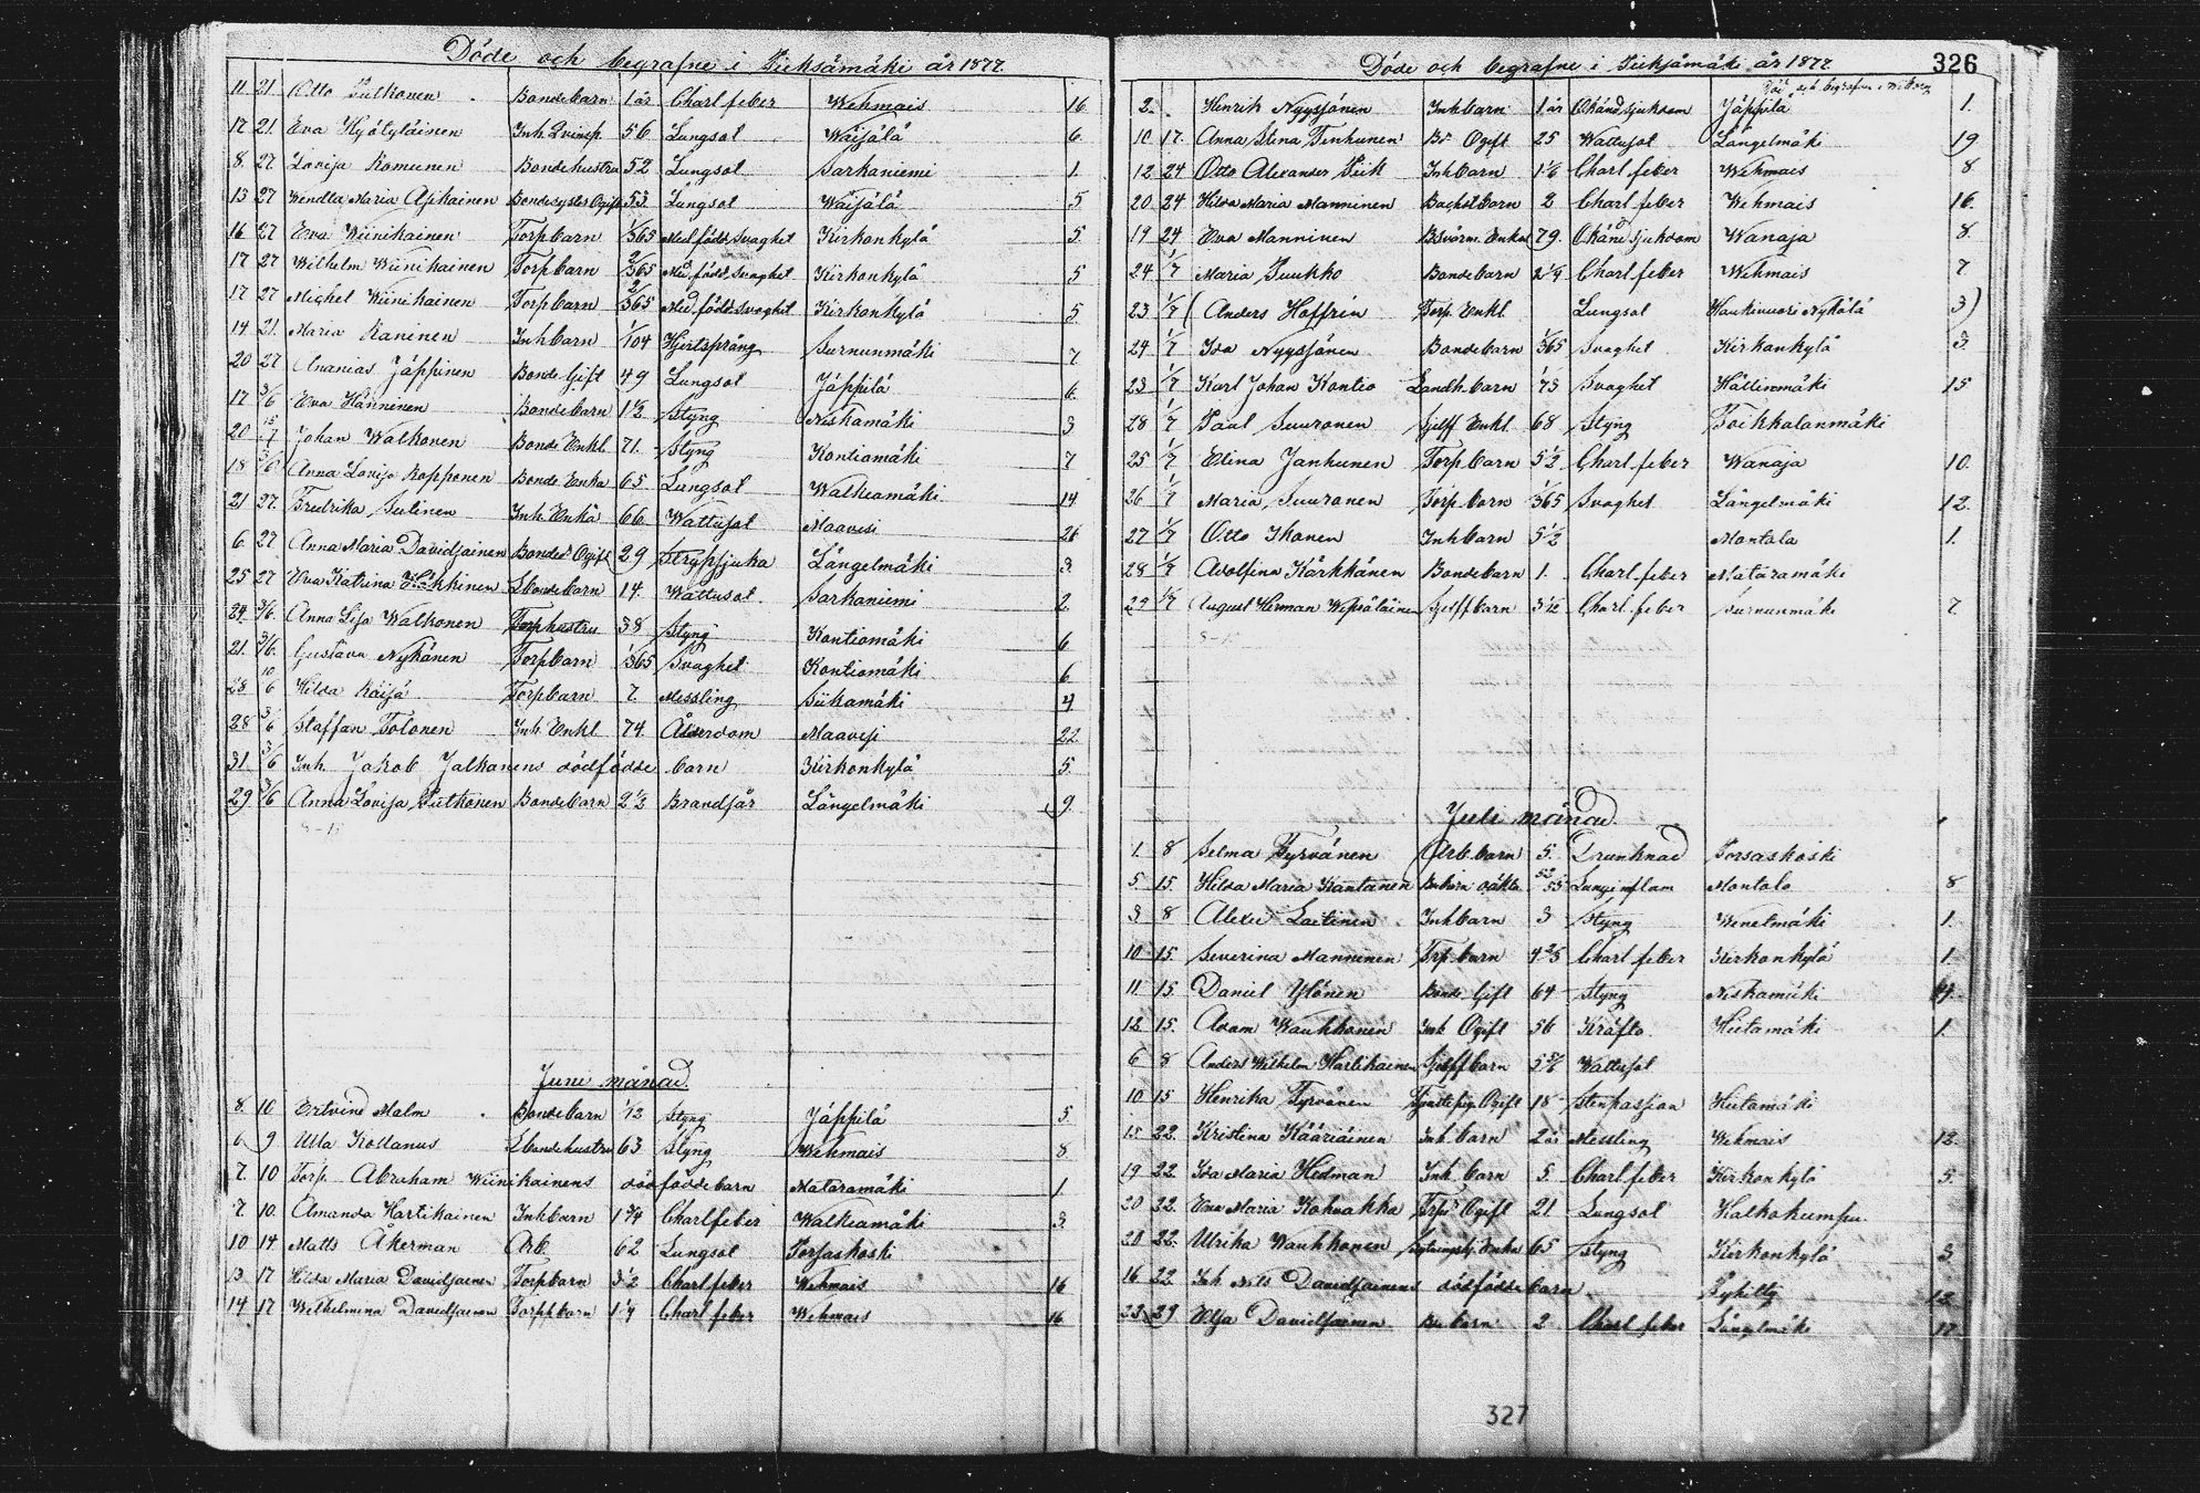 Döde och begrafne i Pieksämäki år 1877.
11 21 Otto Pulkonen Bondebarn 1 år Charl. feber Wehmais 16
17 21. Eva Hyötyläinen Inh. Qvinsp. 56 Lungsot Waisälä 6.
8. 27 Lovisa Romunen Bondehustru 52 Lungsot Sarkaniemi 1.
13 27 Wendla Maria Asikainen Bondesyster Ogift 53 Lungsot Waisälä 5
16 27 Eva Wiinikainen Torp barn 1/365 Med född svaghet Kirkonkylä 5.
17 27 Wilhelm Wiinikainen Torp barn 2/365 Med född svaghet Kirkonkylä 5
17 27 Michel Wiinikainen Torp barn 2/365 Med född svaghet Kirkonkylä 5
14. 21. Maria Raninen Inh barn 1/104 Hjertsprång Surnunmäki 7
20 27 Ananias Jäppinen Bonde Gift 49 Lungsot Jäppilä 6.
17 3/6 Eva Hänninen Bondebarn 1 1/2 Styng Niskamäki 3
20 Johan Walkonen Bonde Enkl. 71. Styng Kontiomäki 7
18 3/6 Anna Lovisa Kopponen Bonde Enka 65 Lungsot Walkeamäki 14
21 27. Fredrika Sulinen Inh. Enka 66 Wattusot Maavesi 26
6. 27 Anna Maria Davidsainen Bonded. Ogift 29 Strypsjuka Längelmäki 3
25 27 Eva Katrina Häkkinen Lbondebarn 14. Wattusot Sarkaniemi 2.
24. 3/6. Anna Lisa Walkonen Torphustru 38 Styng Kontiomäki 6
21. 3/6. Gustava Nykänen Torpbarn 1/365 Svaghet Kontiomäki 6
28 10/6 Hilda Räisä Torpbarn 7. Messling Siikamäki 4
28 3/6 Staffan Tolonen Inh. Enkl 74. Ålderdom Maavesi 22.
31. 3/6 Inh. Jakob Jalkanens dödfödde barn Kirkonkylä 5.
29 3/6 Anna Lovisa Putkonen Bondebarn 2 1/2 Brandsår Längelmäki 9.
Juni månad.
8. 10 Ertvind Malm Bondebarn 1/12 Styng Jäppilä 5.
6 9 Ulla Kollanus Lbondehustru 63 Styng Wehmais 8
7. 10 Torp. Abraham Wiinikainens dödfödde barn Mataramäki 1
7. 10. Amanda Hartikainen Inhbarn 1 3/4 Charlfeber Walkeamäki 3.
10 14 Matts Åkerman Arb. 62 Lungsot Porsaskoski
13 17 Hilda Maria Davidsainen Torpbarn 3 1/2 Charlfeber Wehmais 16
14 17 Wilhelmina Davidsainen Torppbarn 1 1/4 Charl feber Wehmais 16
Döde och begrafne i Pieksämäki år 1877. 326
2. Henrik Nyyssönen Inhbarn 1 år Okänd sjukdom Jäppilä 1.
10 17. Anna Stina Tenhunen Bd Ogift 25 Wattusot Längelmäki 19
12 24 Otto Alexander Piik Inhbarn 1 1/6 Charl feber Wehmais 8
20 24 Hilda Maria Manninen Backst barn 2 Charl feber Wehmais 16.
19 24 Eva Manninen Bsvärm. Enka 79. Okänd sjukdom Wanaja 8.
24 1/7 Maria Puukko Bondebarn 2 1/4 Charl feber Wehmais 7
23 1/7 ( Anders Hoffrén Torp. Enkl. Lungsot Haukivuori Nykälä 3)
24 1/7 Ida Nyyssönen Bondebarn 1/365 Svaghet Kirkonkylä 3.
23 1/7 Karl Johan Kontio Landb. barn 1/73 Svaghet Hällinmäki 15
28 1/7 Paul Suuronen Sjelff Enkl. 68 Styng Toikkalanmäki
25 1/7 Elina Janhunen Torp barn 5 1/2 Charl feber Wanaja 10.
26 1/7 Maria Suuronen Torp. barn 1/365 Svaghet Längelmäki 12.
27 1/7 Otto Ikonen Inhbarn 5 1/2 Montola 1.
28 1/7 Adolfina Kärkkänen Bondebarn 1. Charl feber Mataramäki
29 1/7 August Herman Wepsäläinen Sjelffbarn 3 1/12 Charl. feber Surnunmäki 7.
Juli månad.
1. 8 Selma Tyrvänen Arb. barn 5. Drunknad Porsaskoski
5 15. Hilda Maria Kantanen Lunginflam Montola 8
3 8 Alexei Laitinen Inhbarn 3 Styng Wenetmäki 1.
10 15. Severina Manninen Trp. barn 4 2/5 Charl feber Kirkonkylä 1.
11 15. Daniel Ylönen Bonde Gift 64 Styng Niskamäki
12 15. Adam Waukkonen Inh Ogift 56 Kräfta Hietamäki 1.
6 8 Anders Wilhelm Hartikainen Sjelffbarn 5 5/6 Wattusot
10 15 Henrika Tyrvänen Tjenstepig Ogift 18 Stenpassion Hietamäki
15 22. Kristina Kääriäinen Inh barn 2 år Messling Wehmais 12.
19 22. Ida Maria Hedman Inh barn 5. Charl feber Kirkonkylä 5.
20 22. Eva Maria Kohvakka Trpd Ogift 21 Lungsot Halkokumpu.
20 22. Ulrika Waukkonen Enka 65 Styng Kirkonkylä 3
16 22 Inh Nils Davidsainens dödfödde barn Pyhitty 12
23 29 Elsa Davidsainen Bn barn 2 Charl feber Längelmäki 17
327